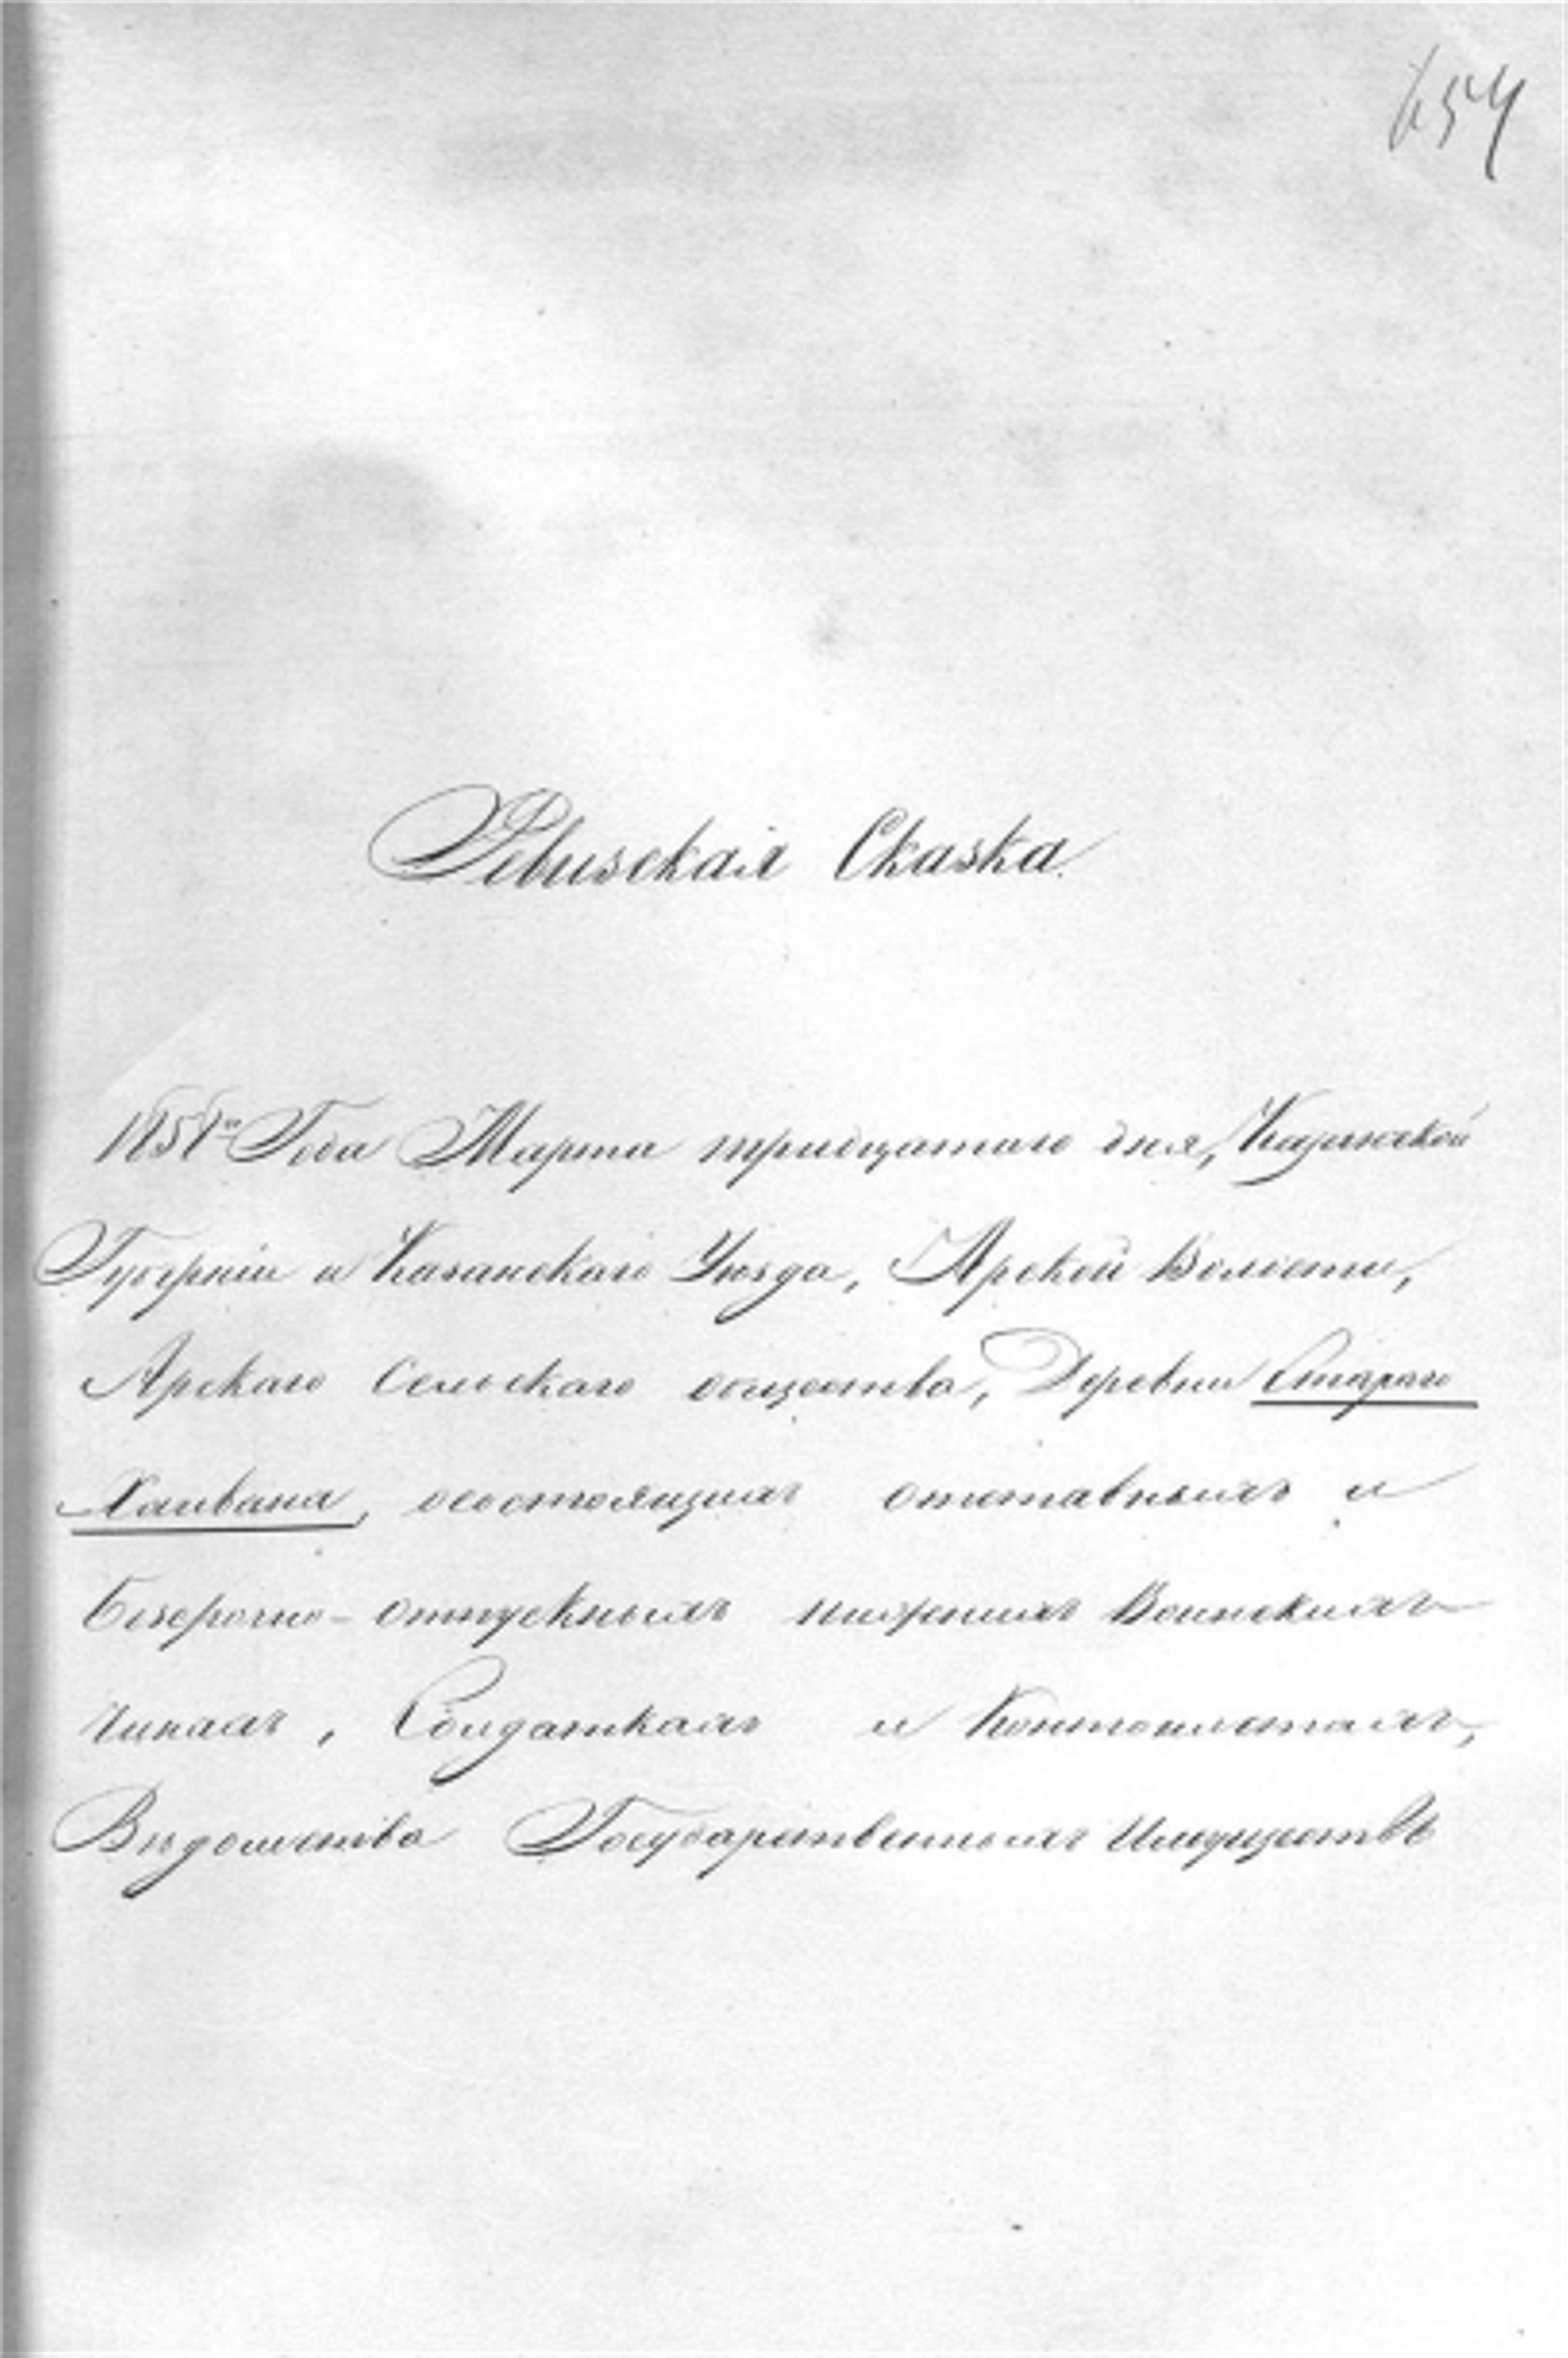 654
Ревизская Сказка.
1858го Года Марта тридцатаго дня, Казанской
Губерніи и Казанскаго Уѣзда, Арской Волости,
Арскаго Сельскаго общества, Деревни Стараго
Хаивана, осостоящихъ отставныхъ и
безсрочно-отпускныхъ нижнихъ Воинскихъ
чинахъ, Солдаткахъ и Кантонистахъ,
Вѣдомства Государственныхъ Имуществъ